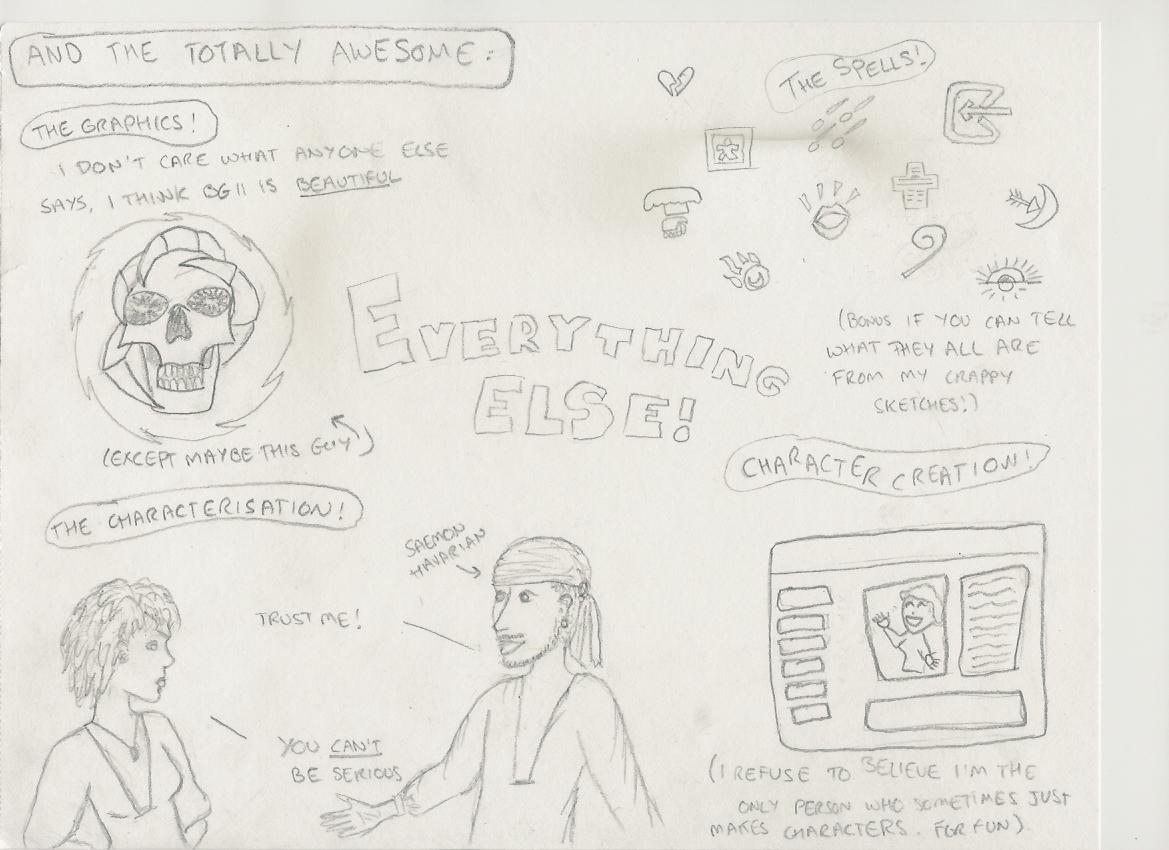 AND THE TOTALLY AWESOME:
THE GRAPHICS!
I DON'T CARE WHAT ANYONE ELSE
SAYS, I THINK BGII IS BEAUTIFUL
(EXCEPT MAYBE THIS GUY)
THE SPELLS!
(BONUS IF YOU CAN TELL
WHAT THEY ALL ARE
FROM MY CRAPPY
SKETCHES!)
EVERYTHING
ELSE!
THE CHARACTERISATION!
SAEMON
HAVARIAN
TRUST ME!
YOU CAN'T
BE SERIOUS
CHARACTER CREATION!
(I REFUSE TO BELIEVE I'M THE
ONLY PERSON WHO SOMETIMES JUST
MAKES CHARACTERS. FOR FUN).